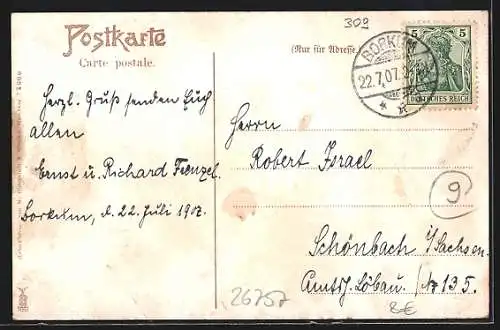 309
Postkarte
Carte postale.
(Nur für Adresse.)
BORKUM
22.7.07.
5 5
DEUTSCHES REICH
Herzl. Gruß senden Euch
allen
Ernst u. Richard Frenzel.
Borkum, d. 22. Juli 1907.
Herrn
Robert Israel
9
Schönbach i/Sachsen.
Amtsh. Löbau. No 135.
26757
8€